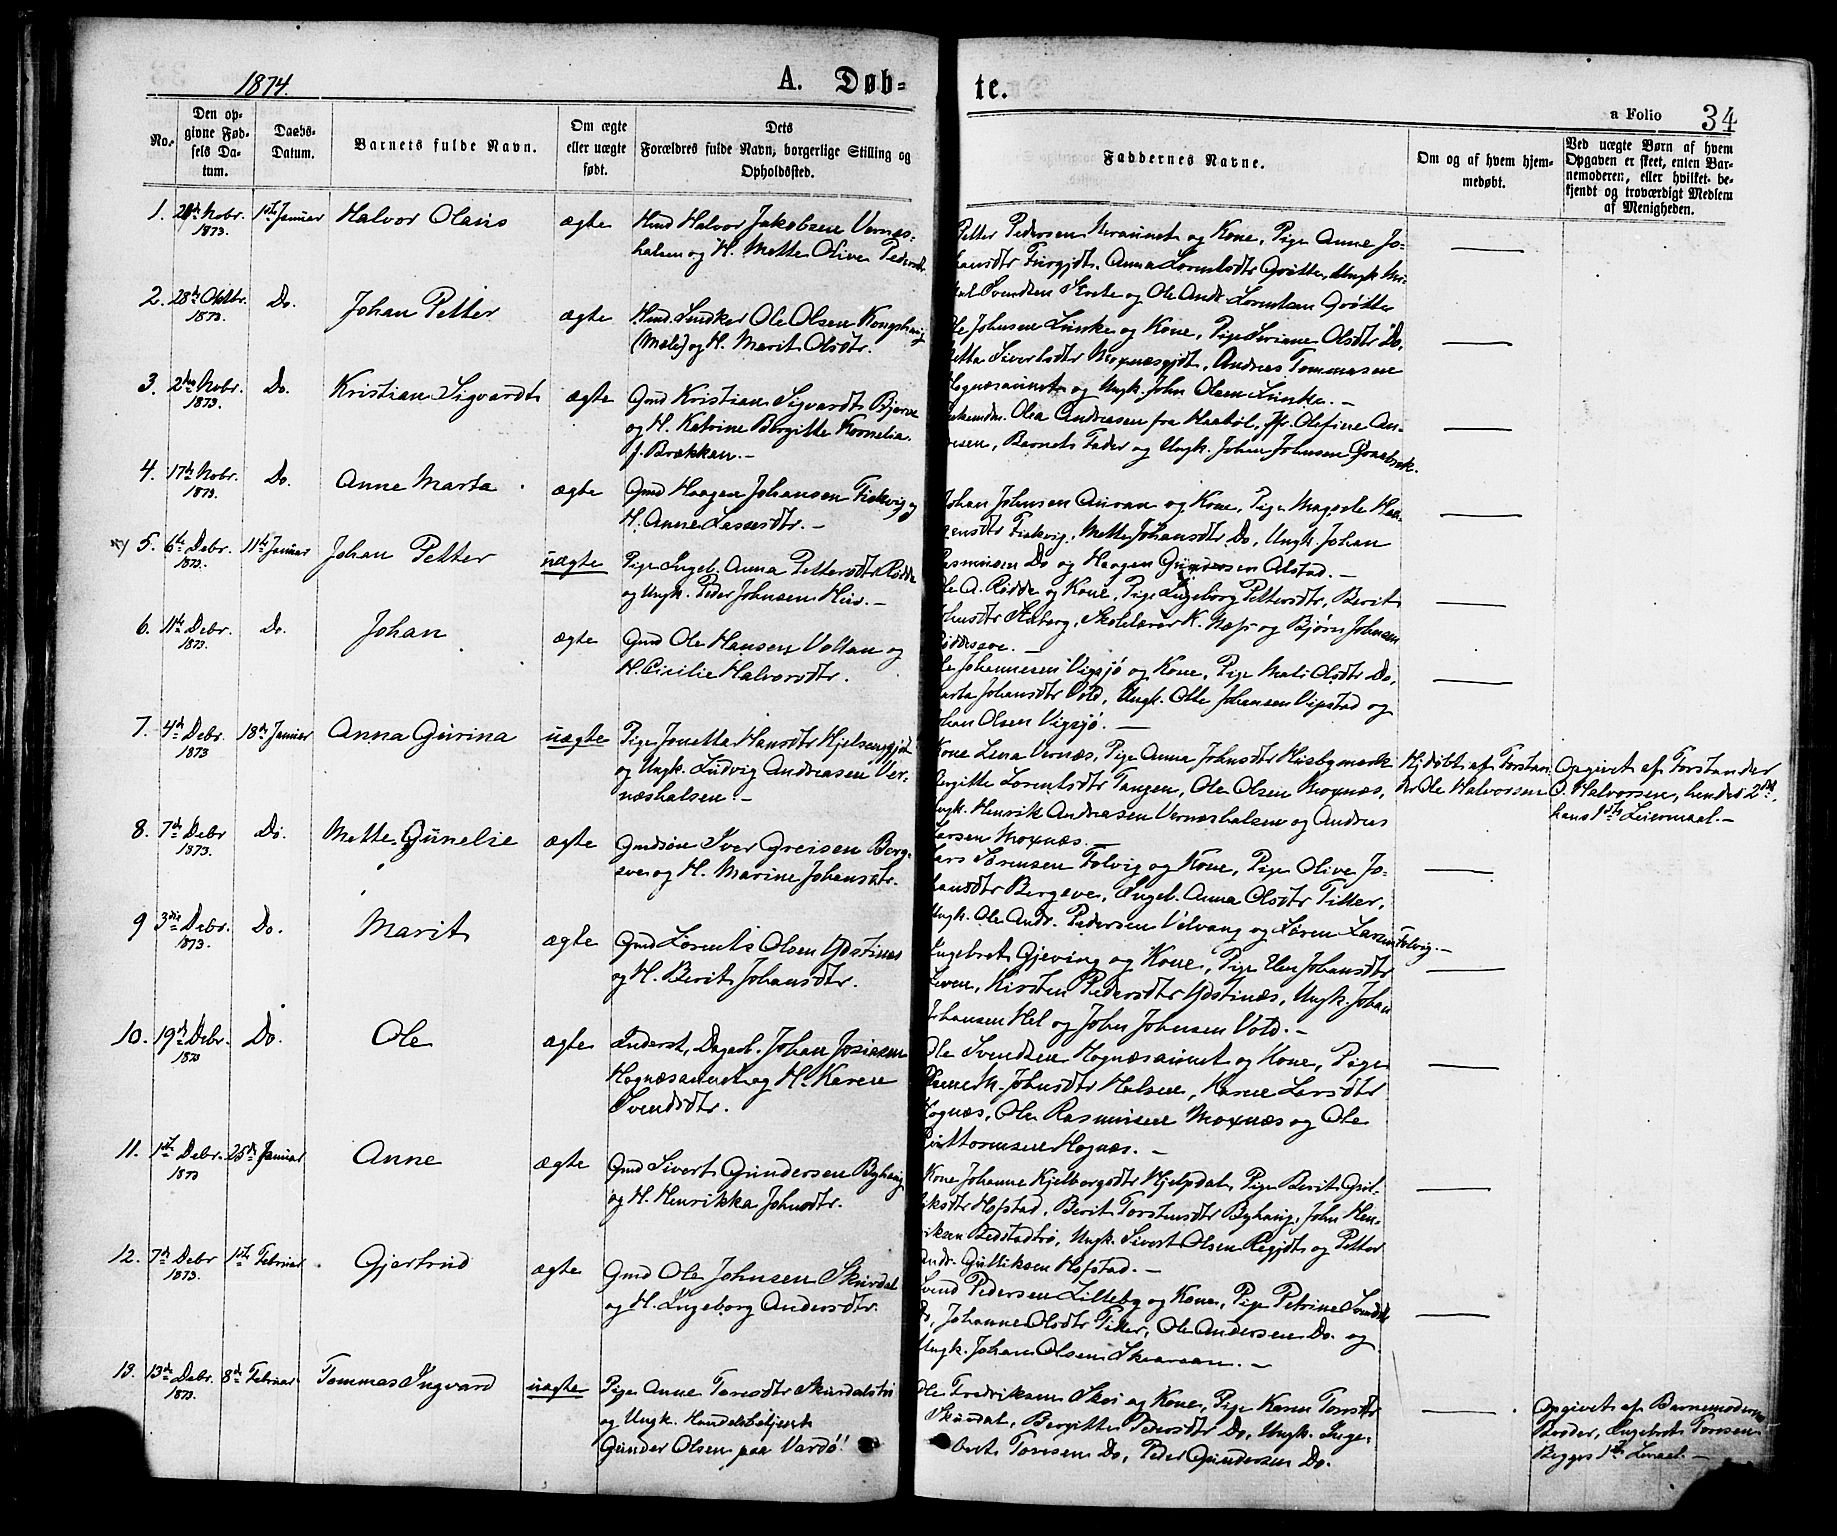 1874.
A. Døb-
te.
a Folio 34
No.
Den op-
givne Fød-
sels Da-
tum.
Daabs-
Datum.
Barnets fulde Navn.
Om ægte
eller uægte
født.
Dets
Forældres fulde Navn, borgerlige Stilling og
Opholdssted.
Faddernes Navne.
Om og af hvem hjem-
medøbt.
Ved uægte Børn af hvem
Opgaven er skeet, enten Bar-
nemoderen, eller hvilket be-
kjendt og troværdigt Medlem
af Menigheden.
1. Nobr. 1873. 1ste Januar Halvor Olaus ægte
Hmd Halvor Jakobsen Vernes-
halsen og H. Mette Olive Pedersdtr.
Petter Pedersen og Kone, Pige Anne Jo-
hansdtr Anna Lorentsdtr Grøtte, Ungk.
Svendsen og Ole Andr. Lorentsen Grøtte
2. 28de Oktbr. 1873. Do. Johan Petter ægte
Hmd. Ole Olsen Kongshaug
(Mæle) og H. Marit Olsdtr.
Ole Johnsen og Kone, Pige Olsdtr Do,
Sivertsdtr Moxnæsgjdt, Andreas Tommasen
Hognæsaunet og Ungk. John Olsen
3. 2den Nobr. 1873. Do. Kristian Sigvardt ægte
Gmd Kristian Sigvardt
og H. Katrine Bergitte Kornelia
f. Brækkan.
Olea Andreasen fra Jfr. Olefine An-
dresen, Barnets Fader og Ungk. Johan Johnsen
4. 17de Nobr. 1873. Do. Anne Marta ægte
Gmd Haagen Johansen Fiskvig og
H. Anne Lassesdtr.
Johan Johnsen og Kone, Pige Magrete Haa-
gensdtr Fiskvig, Mette Johansdtr Do, Ungk. Johan
Rasmussen Do og Haagen Gundersen Alstad.
5. 6te Debr. 1873. 11te Januar Johan Petter uægte
Pige Ingeb. Anna Pettersdtr Rødde
og Ungk. Peder Johnsen
Ole A. Rødde og Kone, Pige Ingeborg Pettersdtr, Berit
Johnsdtr Skolelærer K. Næss og Bjørn Johnsen
6. 11te Debr. 1873. Do. Johan ægte
Gmd Ole Hansen Voltan og
H. Cicilie Halvorsdtr.
Ole Johannesen Vigsjø og Kone, Pige Mali Olsdtr Do,
Marta Johansdtr Vold, Ungk. Olle Johansen og
Johan Olsen Vigsjø.
7. 4de Debr. 1873 18de Januar Anna Gurina uægte
Pige Jonetta Hansdtr
og Ungk. Ludvig Andreasen Ver-
næshalsen.
Kone Lena Vernæs, Pige Anna Johnsdtr Husbymark
Bergitte Lorentsdtr Tangen, Ole Olsen Moxnæs,
Ungk. Henrik Andreasen Vernæshalsen og Andreas
Larsen Moxnæs.
Hj.døbt af Forstan-
der Ole Halvorsen
Opgivet af Forstander
O. Halvorsen, hendes 2det,
hans 1ste Leiermaal.
8. 7de Debr 1873. Do. Mette Gunelie ægte
Gmdsøn Iver Greisen Berg-
sve og H. Marine Johansdtr.
Lars Sørensen Folvig og Kone, Pige Olive Jo-
hansdtr Bergsve, Ingeb. Anna Olsdtr Titter,
Ungk. Ole Andr. Pedersen Volvang og Søren Larsen Folvig.
9 3die Debr. 1873. Do. Marit ægte
Gmd Lorents Olsen Ydstines
og H. Berit Johansdtr.
Ingebret Gjeving og Kone, Pige Elen Johansdtr
Kirsten Pedersdtr Ydstinæs, Ungk. Johan
Johansen Hel og John Johnsen Vold.
10. 19de Debr. 1873 Do. Ole ægte
Inderst, Dagarb. Johan Josiasen
Hognæsaunet og H. Karen
Svendsdtr.
Ole Svendsen Hognæsaunet og Kone, Pige
M. Johnsdtr Halsen, Karen Larsdtr
Hognæs, Ole Rasmussen Moxnæs og Ole
Guttormsen Hognæs.
11. 1ste Debr. 1873 25de Januar Anne ægte
Gmd Sivert Gundersen Byhaug
og H. Henrikka Johnsdtr.
Kone Johanne Kjelbergsdtr Hjelpdal, Pige Berit Gul-
liksdtr Hofstad, Berit Torstensdtr Byhaug, John Hen-
riksen Ungk. Sivert Olsen og Petter
Andr. Gulliksen Hofstad.
12. 7de Debr 1873. 1ste Februar Gjertrud ægte
Gmd Ole Johnsen Skurdal
og H. Ingeborg Andersdtr.
Svend Pedersen Lilleby og Kone, Pige Petrine Svendsdtr
Do, Johanne Olsdtr Titter, Ole Andersen Do. og
Ungk. Johan Olsen
13. 13de Debr. 1873. 8de Februar Tommas Ingvard uægte
Pige Anne Toresdtr
og Ungk. Handelsbetjent
Gunder Olsen paa Vardø!
Ole Fredriksen Skei og Kone, Pige Karen Toresdtr
Skurdal, Bergitte Pedersdtr Do, Ungk. Inge-
bret Toresen Do, Peder Gundersen Do.
Opgivet af Barnemoderens
Broder, Ingebret Toresen.
Begges 1ste